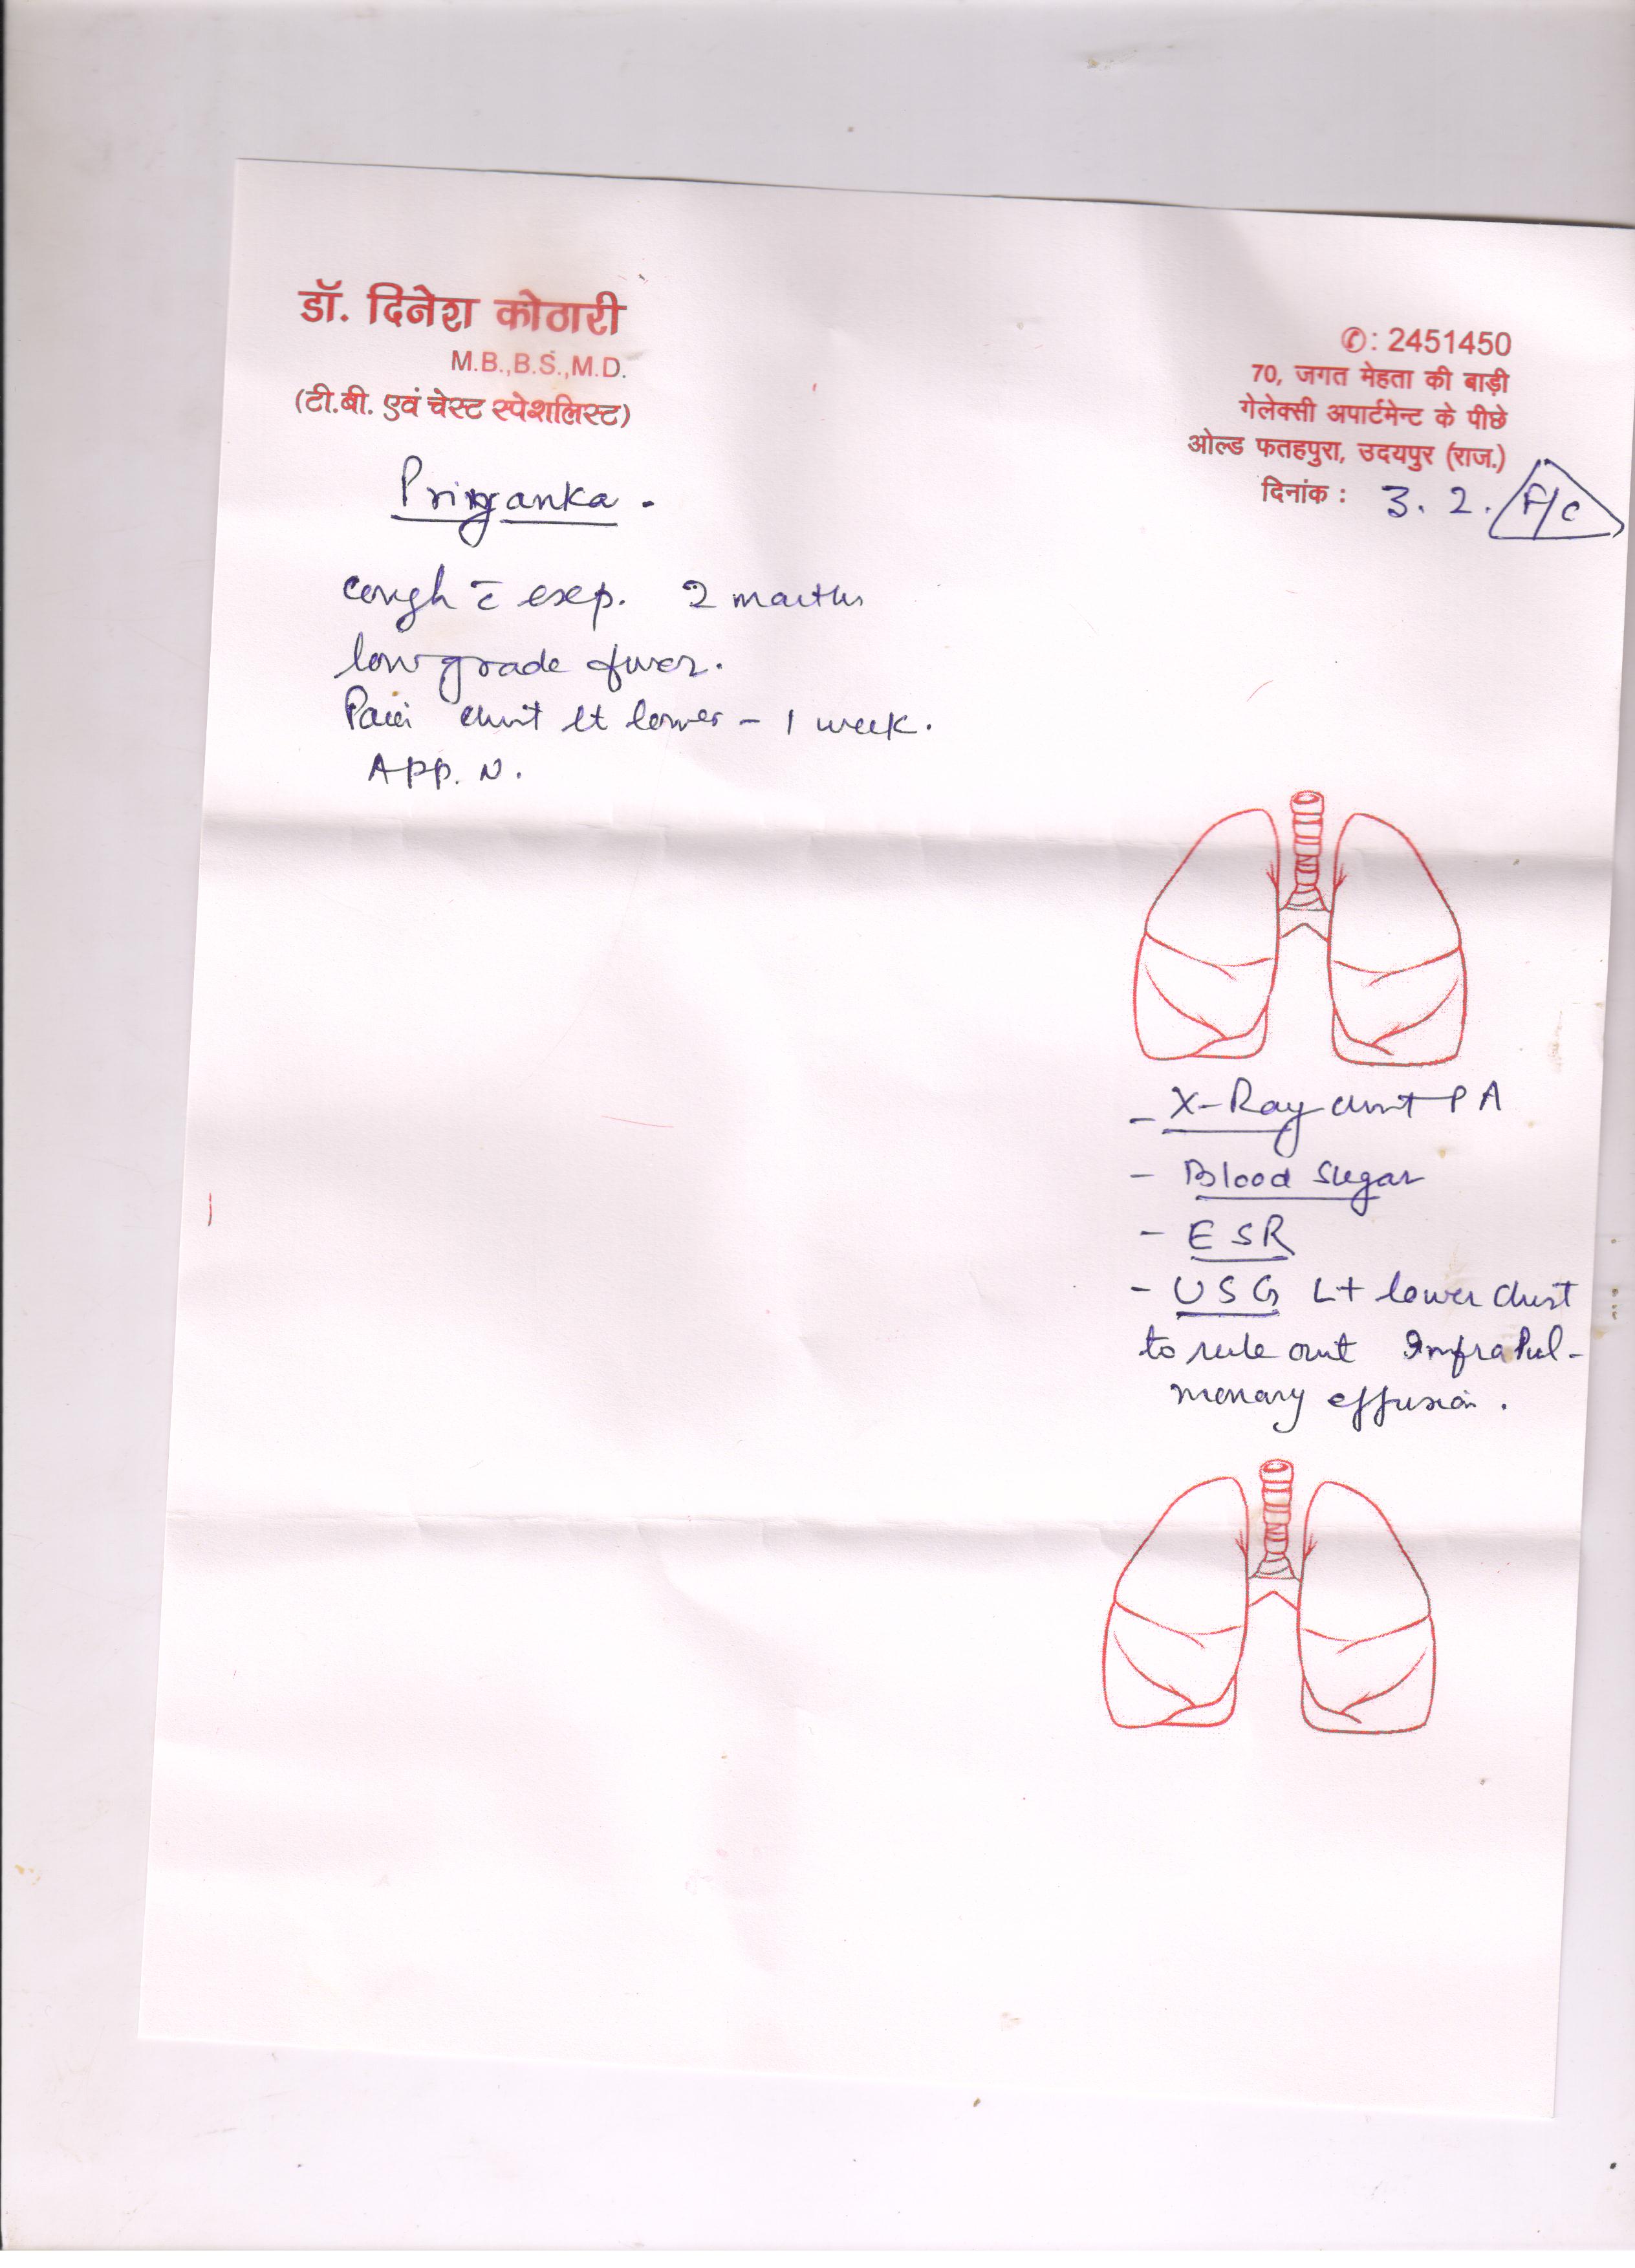 डॉ. दिनेश कोठारी
M.B.,B.S.,M.D.
(टी.बी. एवं चेस्ट स्पेशलिस्ट)
✆: 2451450
70, जगत मेहता की बाड़ी
गेलेक्सी अपार्टमेन्ट के पीछे
ओल्ड फतहपुरा, उदयपुर (राज.)
दिनांक : 3. 2. F/C
Priyanka.
cough c̄ exp. 2 months
low grade fever.
Pain chest lt lower - 1 week.
App. N.
- X-Ray chest PA
- Blood Sugar
- ESR
- USG Lt lower chest
to rule out Infrapul-
monary effusion.